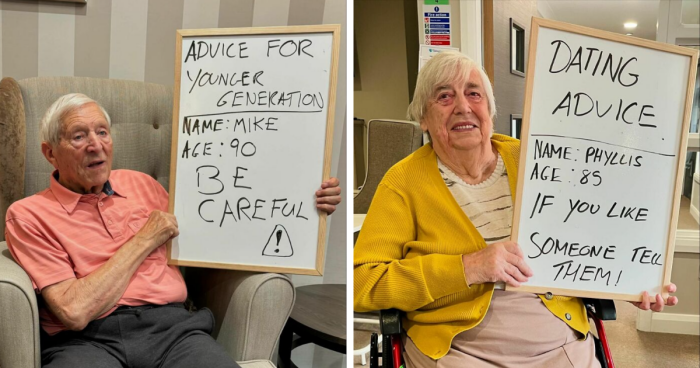 ADVICE FOR
YOUNGER
GENERATION
NAME: MIKE
AGE: 90
BE
CAREFUL
!
DATING
ADVICE
NAME: PHYLLIS
AGE: 85
IF YOU LIKE
SOMEONE TELL
THEM!